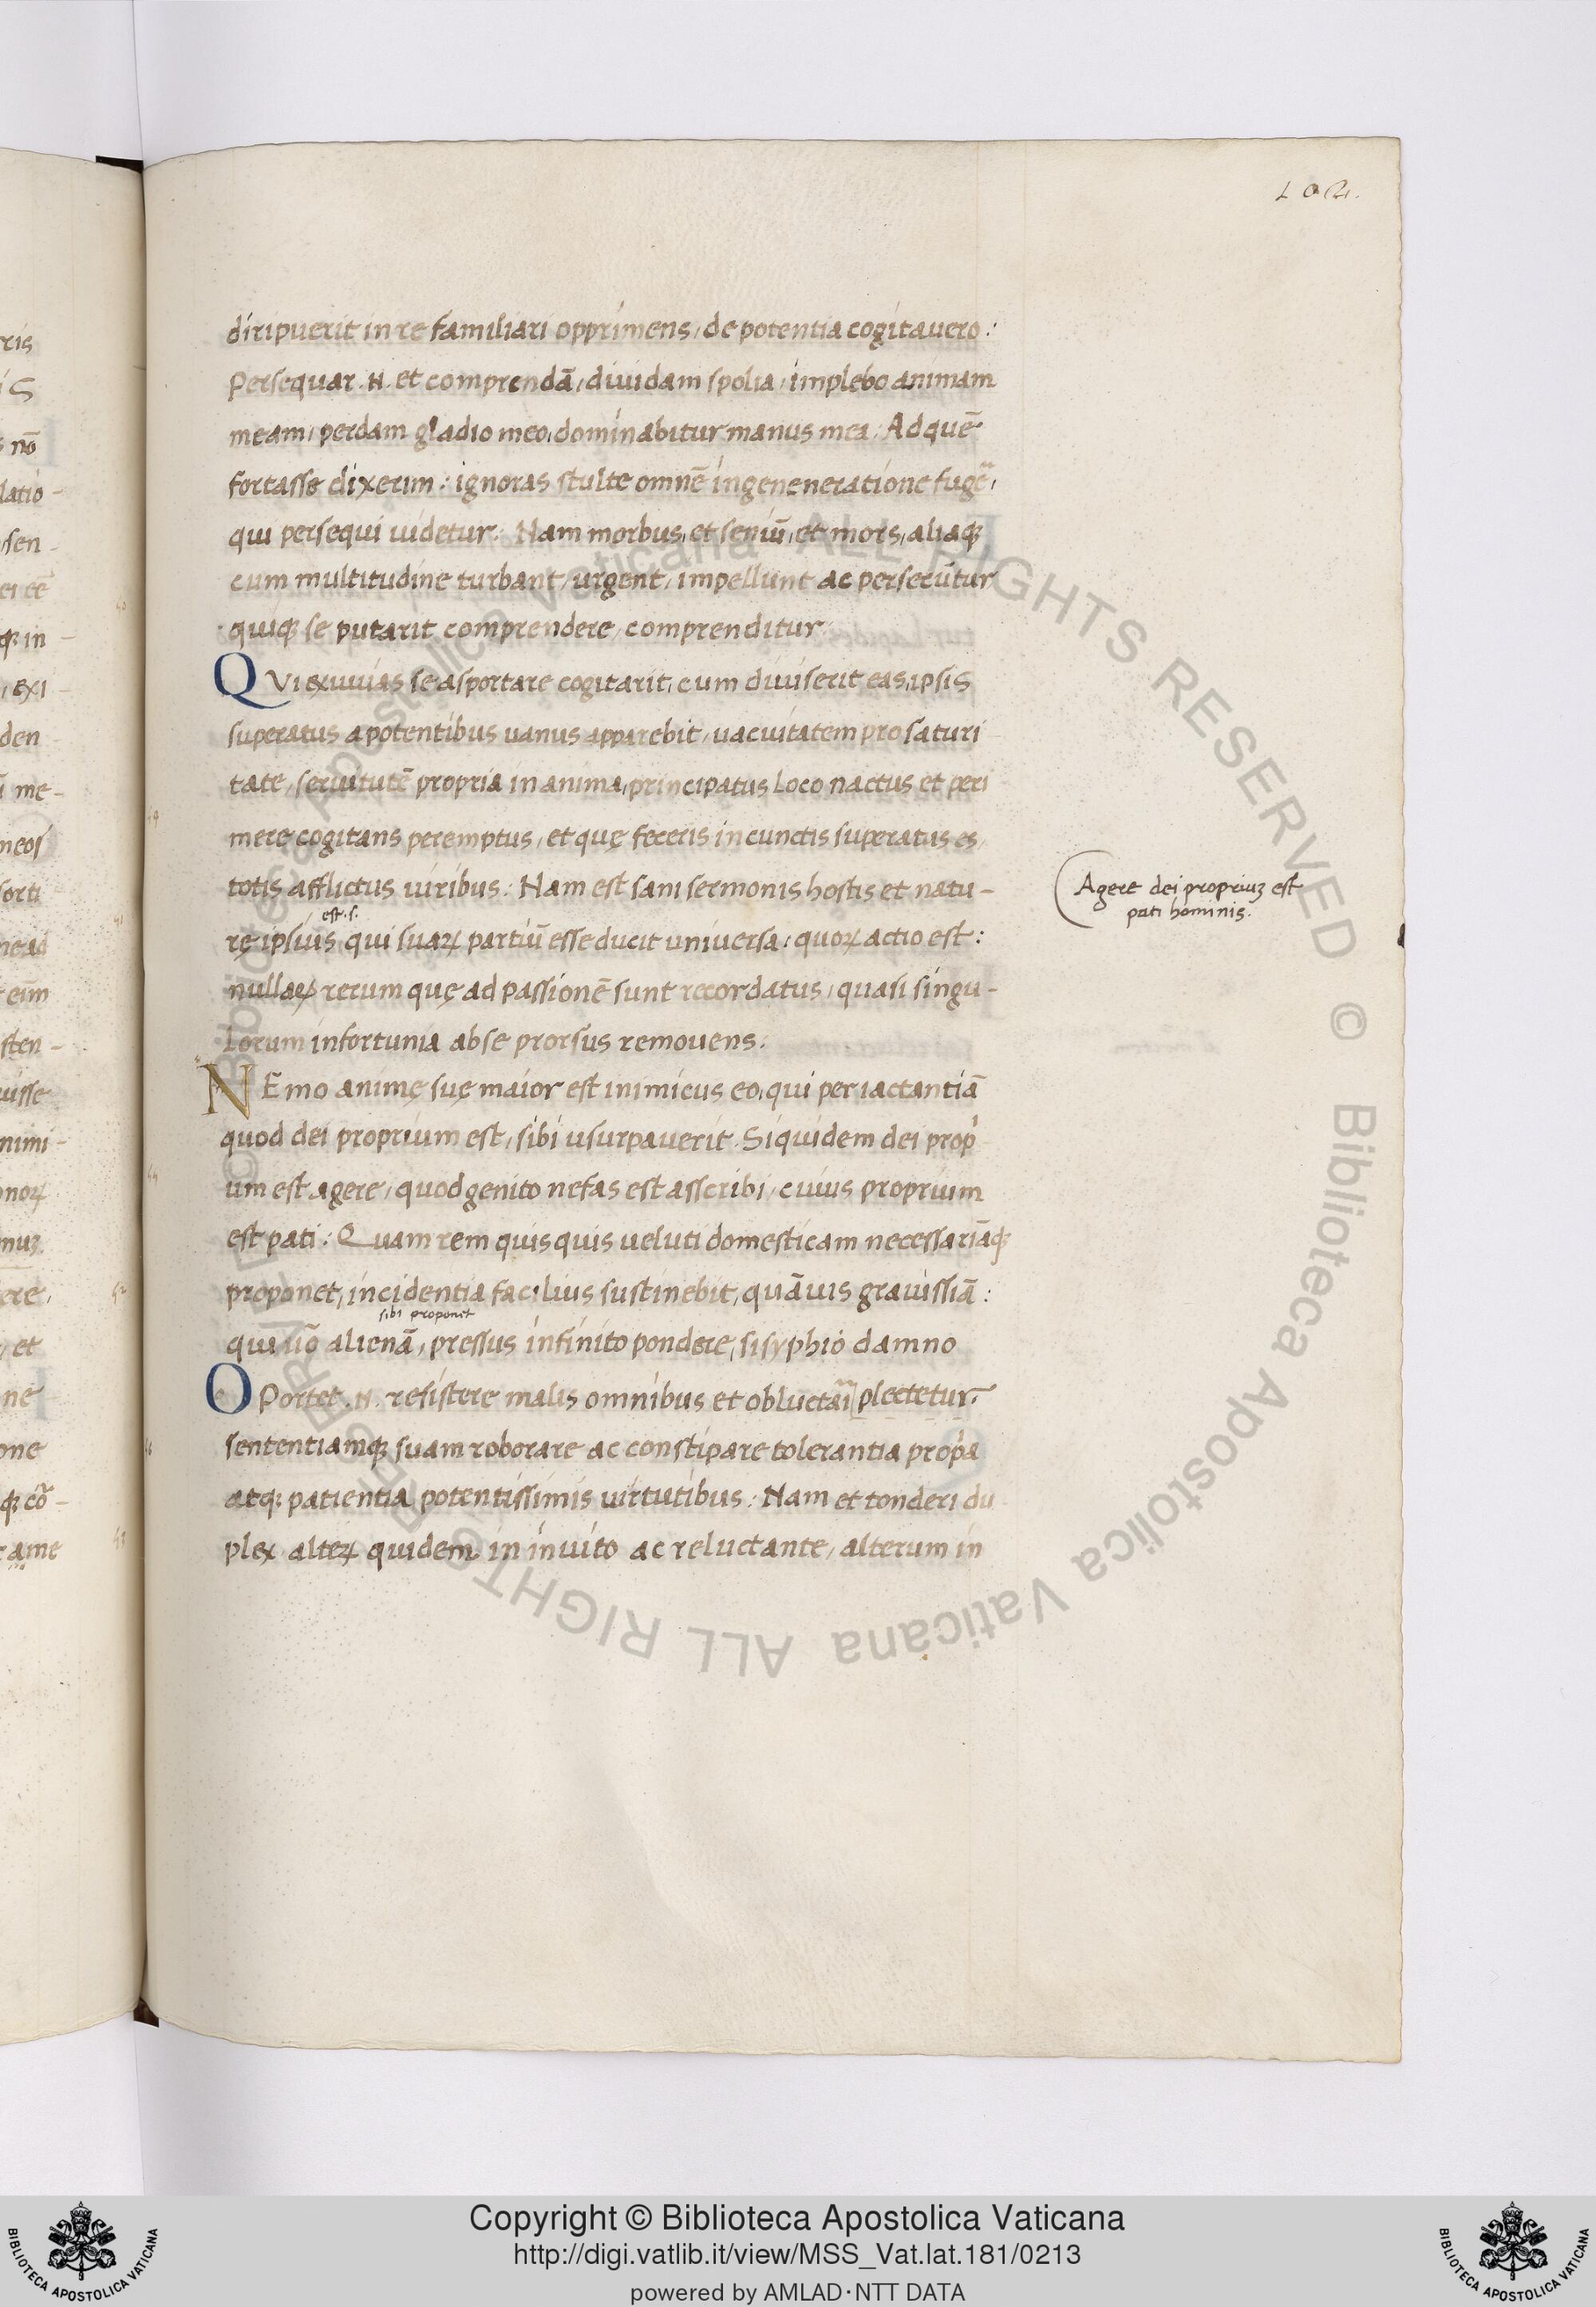 102.
diripuerit in re familiari opprimens, de potentia cogitavero:
Persequar .N. et comprendā, dividam spolia, implebo animam
meam, perdam gladio meo, dominabitur manus mea. Ad quē
fortasse dixerim: ignoras stulte omnē in geneneratione fugē,
qui persequi videtur. Nam morbus, et seniū, et mors, aliaqꝫ
cum multitudine turbant, urgent, impellunt ac persecūtur
quiqꝫ se putarit comprendere, comprenditur
QVi exuvias se asportare cogitarit, cum diviserit eas, ipsis
superatus a potentibus vanus apparebit, vacuitatem pro saturi
tate, servitutē propria in anima, principatus loco nactus et peri
mere cogitans peremptus, et quę feceris in cunctis superatus es,
totis afflictus viribus. Nam est sani sermonis hostis et natu-
est .s.
rę ipsius qui suaꝝ partiū esse ducit universa: quoꝝ actio est:
nullaꝝ rerum quę ad passionē sunt recordatus, quasi singu-
lorum infortunia ab se prorsus removens.
NEmo animę suę maior est inimicus eo, qui per iactantiā
quod dei proprium est, sibi usurpaverit. Siquidem dei propi
um est agere, quod genito nefas est asscribi, cuius proprium
est pati. Quam rem quisquis veluti domesticam necessariāqꝫ
proponet, incidentia facilius sustinebit, quāvis gravissiā:
sibi proponet
qui uō alienā, pressus infinito pondere, sisyphio damno
OPortet .N. resistere malis omnibus et obluctāī plectetur.
sententiamqꝫ suam roborare ac constipare tolerantia propia
atqꝫ patientia potentissimis virtutibus. Nam et tonderi du
plex alteꝝ quidem in invito ac reluctante, alterum in
Agere dei propriuꝫ est
pati hominis.
ris
is
s nō
latio-
sen-
ei eē
qꝫ in-
, exi
den
me-
meos
sorti
eīm
sten-
uisse
nimi-
noꝝ
muꝫ.
ere,
, et
ne
one
qꝫ cō-
ame
Copyright © Biblioteca Apostolica Vaticana
http://digi.vatlib.it/view/MSS_Vat.lat.181/0213
powered by AMLAD·NTT DATA
BIBLIOTECA APOSTOLICA VATICANA
BIBLIOTECA APOSTOLICA VATICANA
© Biblioteca Apostolica Vaticana ALL RIGHTS RESERVED © Biblioteca Apostolica Vaticana ALL RIGHTS RESERVED